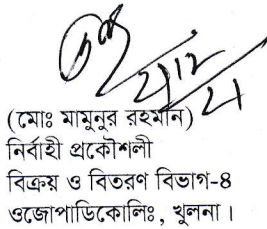 (মোঃ মামুনুর রহমান)
নির্বাহী প্রকৌশলী
বিক্রয় ও বিতরণ বিভাগ-৪
ওজোপাডিকোলিঃ, খুলনা।